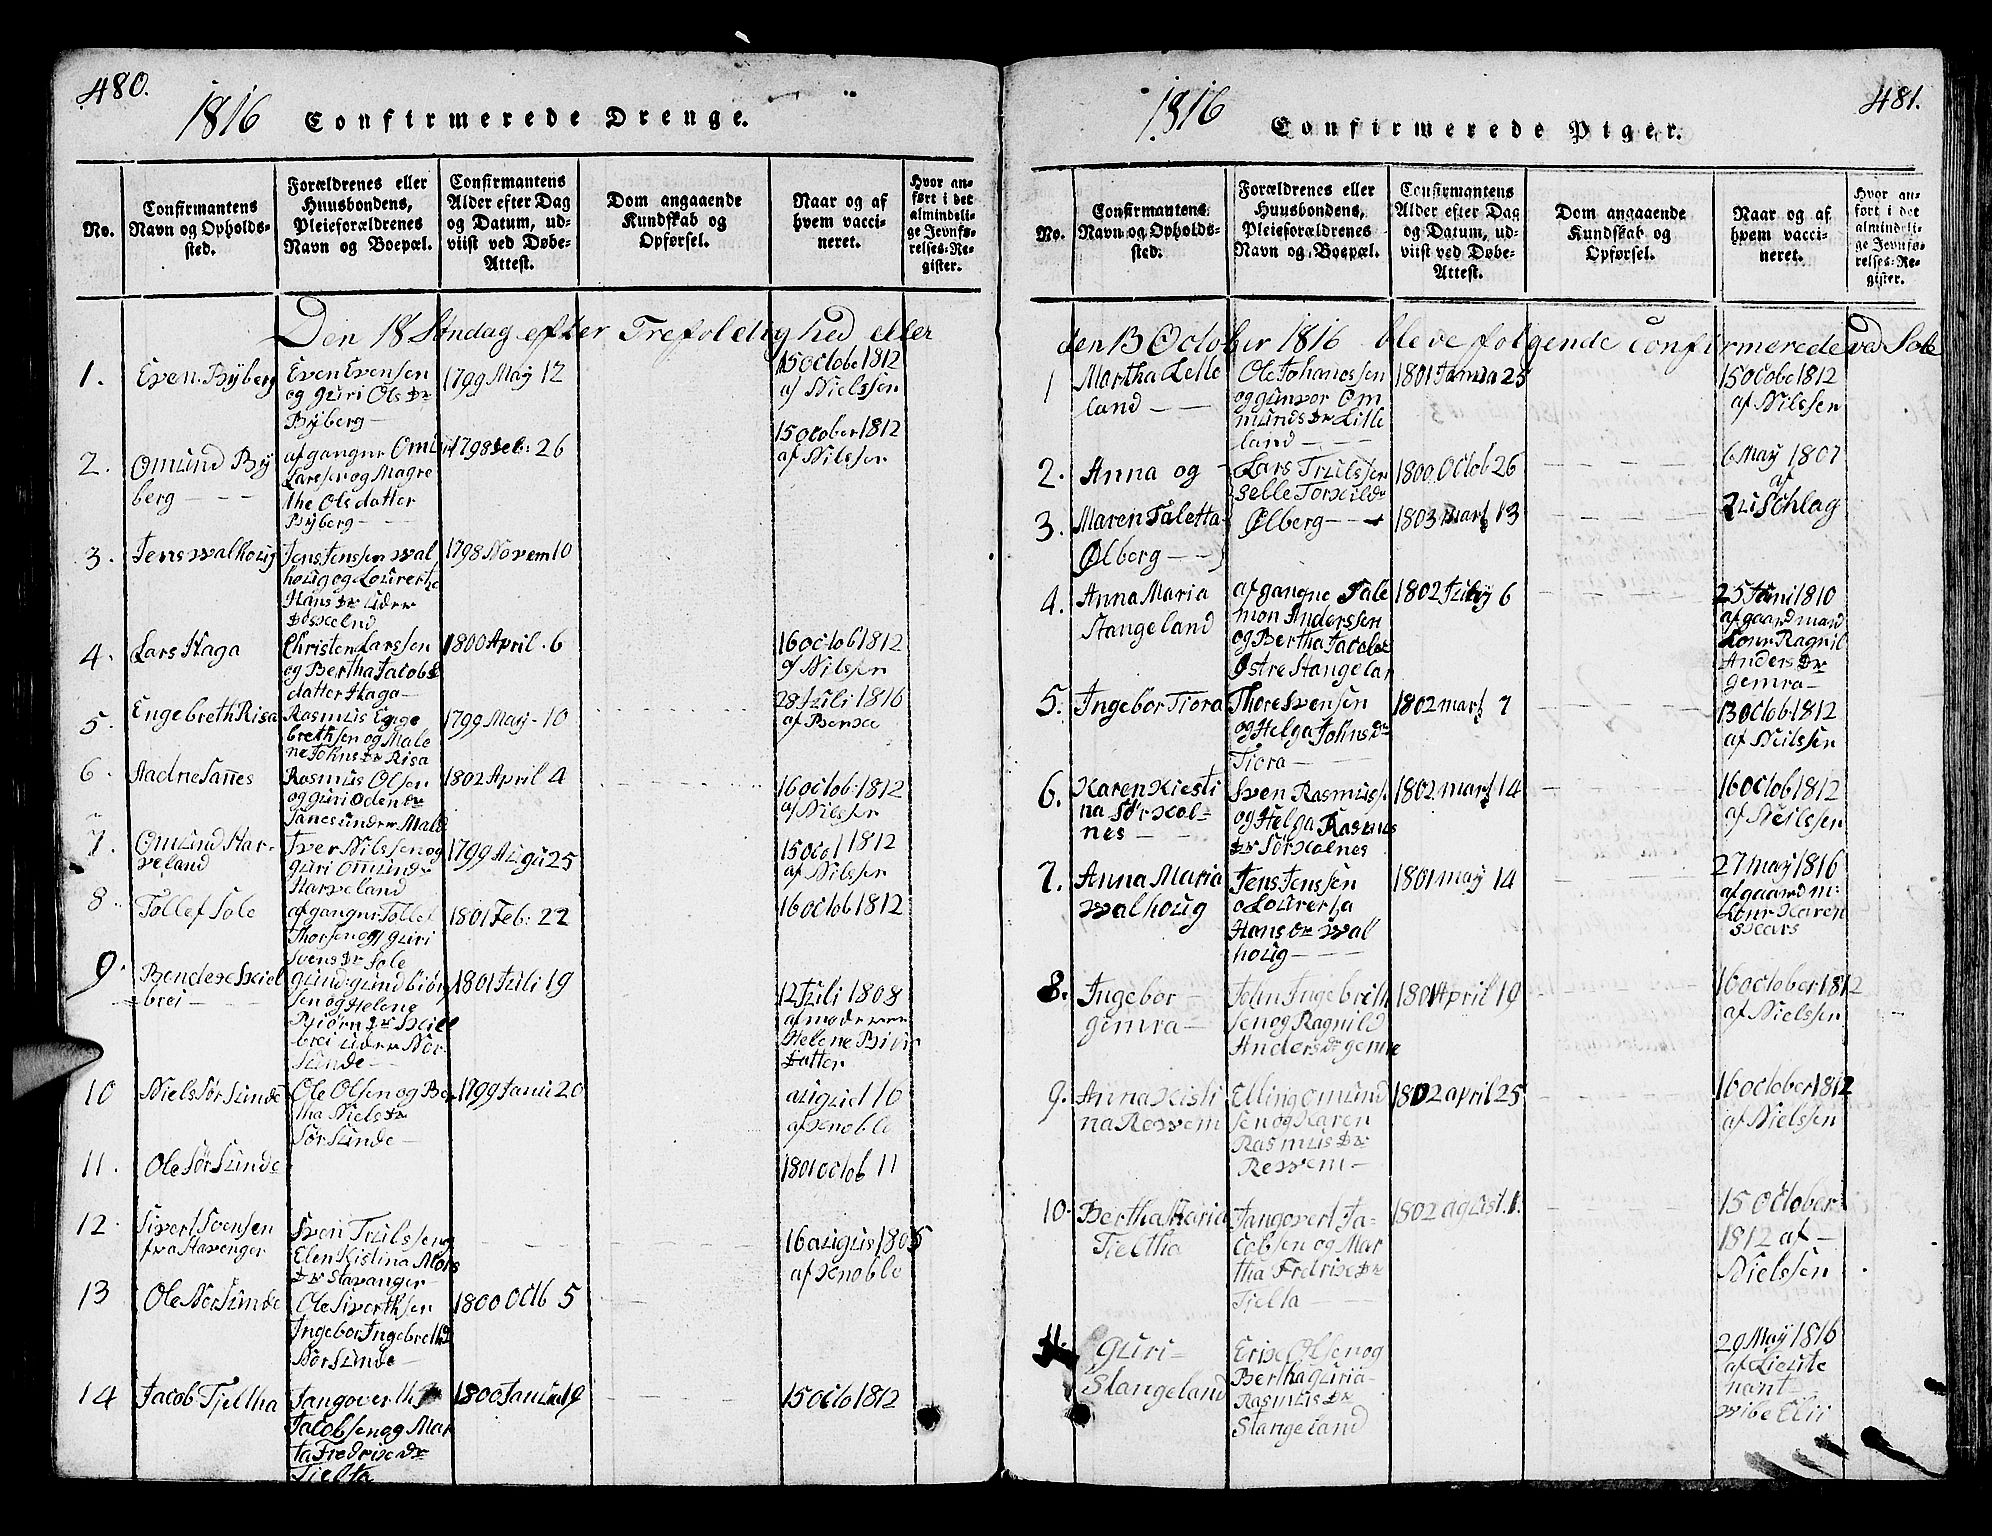 480.
1816 Confirmerede Drenge.
No.
Confirmantens
Navn og Opholds-
sted.
Forældrenes eller
Huusbondens,
Pleieforældrenes
Navn og Boepæl.
Confirmantens
Alder efter Dag
og Datum, ud-
viist ved Døbe-
Attest.
Dom angaaende
Kundskab og
Opførsel.
Naar og af
hvem vacci-
neret.
Hvor an-
ført i det
almindeli-
ge Jevnfø-
relses-Re-
gister.
Den 18 Søndag efter Trefoldighed eller
1. Even Byberg
Even Evensen
og Guri Ols Dr
Byberg
1799 May 12
15 Octobe 1812
af Nielssen
2. Omund By
berg
afgangne Omun
Larssen og Magre
the Olsdatter
Byberg
1798 Feb: 26
15 October 1812
af Nilssen
3. Jens Walhoug
Jens Jenssen Wal
houg og Lourentse
Hans Dr under
1798 Novem 10
4. Lars Haga
Christen Larssen
og Bertha Jacobs
datter Haga
1800 April. 6
16 Octob 1812
af Nilssen
5. Engebreth Risa
Rasmus Enge
brethsen og Male
ne Johns Dr Risa
1799 May 10
28 Juli 1816
af
6. Aadne Sannes
Rasmus Olsen
og Guri Oden Dr
Sanes under Mald
1802 April 4
16 octob: 1812
af Nilssen
7. Omund Har-
veland
Iver Nilssen og
Guri Omunds
Harveland
1799 Augu 25
15 Oct 1812
af Nilssen
8. Tollef Sole
afgangne Tollef
Thorsen og Guri
Svens Dr Sole
1801 Feb: 22
16 Octob 1812
9. Bendex Skiel
brei
gund: gundbiörn
sen og Helene
Biörn Dr Skiel
brei under Nor-
Sunde
1801 Juli 19
12 Juli 1808
af moderen
Helene Biörn
Datter
10 Niels Sør Sunde
Ole Olsen og Ber
tha Niels Dr
Sør Sunde
1799 Janu 20
16
af Knoble
11. Ole Sør Sunde
1801 octob 11
12. Sivert Svensen
fra Stavenger
Sven Truilssen og
Elen Kistina
Dr Stavanger
16 augus 1805
af Knoble
13 Ole Nor Sunde
Ole Siverthsen
Ingebor Ingebreths
Nor Sunde
1800 Octb 5
14 Jacob Tjeltha
Jangoverth
Jacobsen og Mar
ta Fredrixe Dr
Tjelta
1800 Janua 19
15 Octo 1812
481.
1816 Confirmerede Piger.
No.
Confirmantens
Navn og Opholds-
sted.
Forældrenes eller
Huusbondens,
Pleieforældrenes
Navn og Boepæl.
Confirmantens
Alder efter Dag
og Datum, ud-
viist ved Døbe-
Attest.
Dom angaaende
Kundskab og
Opførsel.
Naar og af
hvem vacci-
neret.
Hvor an-
ført i det
almindeli-
ge Jevnfø-
relses-Re-
gister.
den 13 October 1816 bleve følgende Confirmerede ved Sole
1 Martha Lelle
land
Ole Johanessen
og Gunvor Om
munds Dr Lille
land
1801 Janua 25
15 Octobe 1812
af Nilssen
2. Anna og
Lars Truilssen
Selle Torkilds
1800 Octob 26
6 May 1807
af
Zuschlag
3. Maren Saletta
Ølberg
Ølberg
1803 Marts 13
4. Anna Maria
Stangeland
afgangne Sale
mon Anderssen
og Bertha Jacobs
Østre Stangelan
1802 July 6
25 Juni 1810
af gaardmand
Kone Ragnil
Anders Dr
Gemra
5. Ingebor Tiora
Thore Svensen
og Helga Johns Dr
Tiora
1802 marts 7
13 Octob 1812
af Neilssen
6. Karen Kiesti
na Sør Kol-
nes
Sven Rasmuss
og Helga Rasmus
Dr Sør Kolnes
1802 marts 14
16 Octob 1812
af Neilssen
7. Anna Maria
Walhoug
Jens Jenssen
o Lourentsa
Hans Dr Wal
houg
1801 may 14
27 may 1816
af gaard m:
Kone Karen
8. Ingebor
Gemra
John Ingebrith
sen og Ragnild
Anders Dr Gemre
1801 April 19
16 October 1812
af Nielssen
9. Anna Kisti
na Resvem
Elling Omund
sen og Karen
Rasmus Dr
Resvem
1802 april 25
16 October 1812
af Nielssen
10. Bertha Maria
Tjeltha
Jangovert Ja-
cobsen og Mar
tha Fredrixe Dr
Tjelta
1802 agust. 1.
15 October
1812 af
Nielssen
11. Guri
Stangeland
Erix Olsen og
Bertha Guria
Rasmus Dr
Stangeland
29 May 1816
af Lieute
nant
Wibe